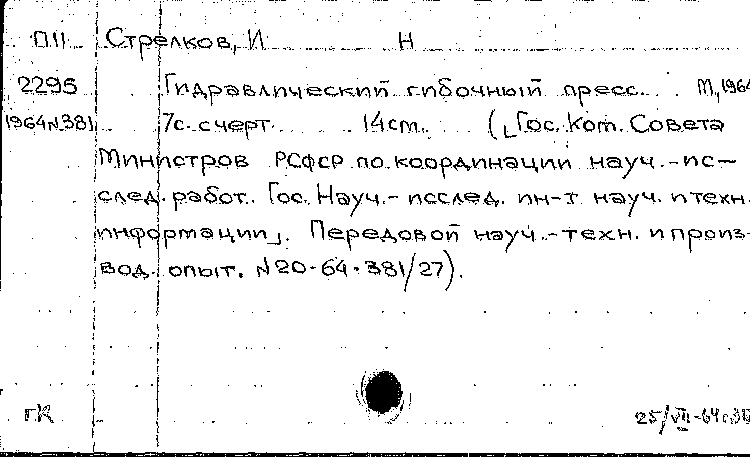 П11 Стрелков, И Н
2295 Гидравлический гибочный пресс. М, 1964
1964 N 381 7с. с черт. 14 cm. (⌊Гос. Ком. Совета
Министров РСФСР по координации науч.-ис-
след. работ. Гос. Науч.-исслед. ин-т науч. и техн.
информации⌋. Передовой науч.-техн. и произ-
вод. опыт. N 20-64-381/27).
ГК 25/VII-64г.